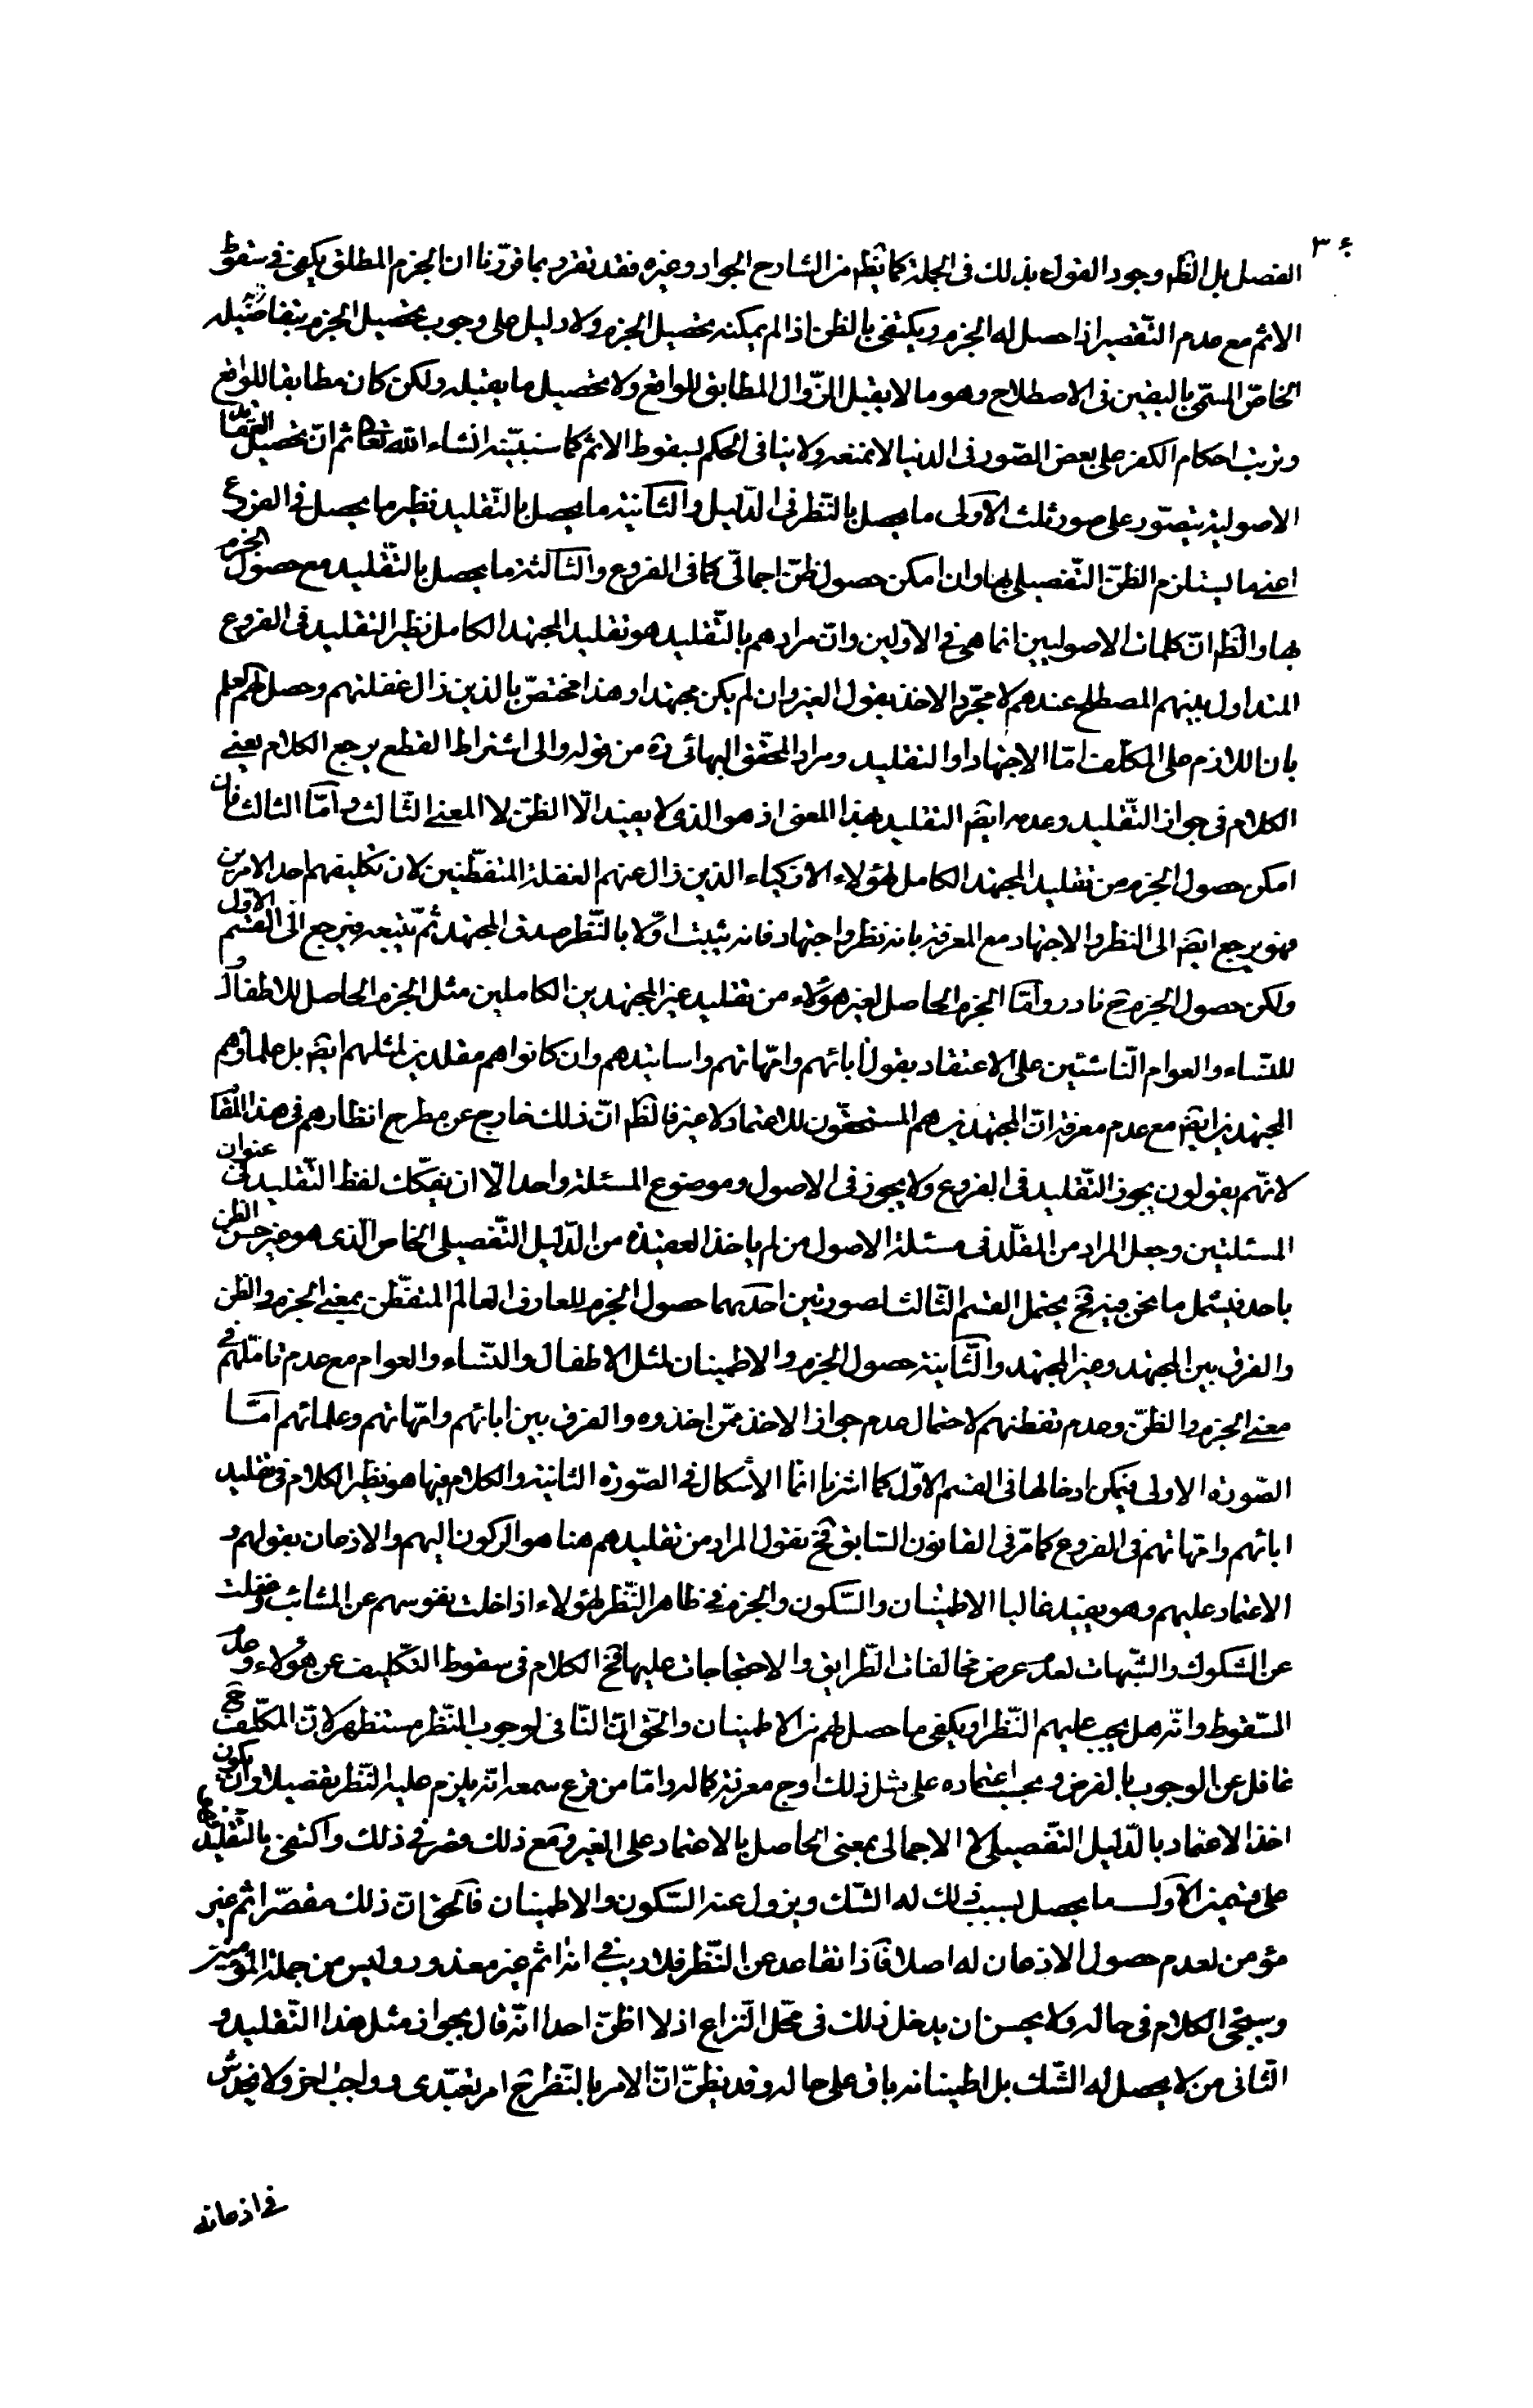 ٣٤
الفصل بل الظ وجود القول بذلك فى الجملة كما يظهر من الشارح الجواد وغيره فقد تفرد بما قررنا ان الجزم المطلق يكفى فى سقوط
الاثم مع عدم التّقصير اذا حصل له الجزم ويكتفى بالظن اذا لم يمكنه تحصيل الجزم ولا دليل على وجوب تحصيل الجزم بتفاصيله
الخاصّ المسمّى باليقين فى الاصطلاح وهو ما لا يقبل الزّوال المطابق للواقع ولا تحصيل ما يقبله ولكن كان مطابقا للواقع
وترتب احكام الكفر على بعض الصّور فى الدنيا لا نمنعه ولا ينافى الحكم بسقوط الاثم كما سنبيّنه انشاء الله تعا ثم انّ تحصيل العقايد
الاصولية يتصّور على صور ثلث الاولى ما يحصل بالنّظر فى الدّليل والثّانية ما يحصل بالتّقليد نظير ما يحصل فى الفروع
اعنى ما يستلزم الظنّ التّفصيلى بها وان امكن حصول ظنّ اجمالىّ كما فى الفروع والثّالثة ما يحصل بالتّقليد مع حصول الجزم
بها والظ انّ كلمات الاصوليين انما هى فى الاولين وانّ مرادهم بالتّقليد هو تقليد المجتهد الكامل نظير التقليد فى الفروع
المتداول بينهم المصطلح عندهم لا مجرّد الاخذ بقول الغير وان لم يكن مجتهدا وهذا مختصّ بالذين زال غفلتهم وحصل لهم العلم
بان اللازم على المكلّف امّا الاجتهاد او التقليد ومراد المحقّق البهائى ره من قوله والى اشتراط القطع يرجع الكلام يعنى
الكلام فى جواز التّقليد وعدمه ايضا التقليد بهذا المعنى اذ هو الذى لا يفيد الّا الظنّ لا المعنى الثّالث وامّا الثالث فان
امكن حصول الجزم من تقليد المجتهد الكامل لهؤلاء الاذكياء الذين زال عنهم الغفلة المتفطّنين لان تكليفهم احد الامرين
فهو يرجع ايضا الى النظر والاجتهاد مع المعرفة بانه نظر واجتهاد فانه يثبت اوّلا بالنّظر صدق المجتهد ثمّ يتبعه فيرجع الى القسم الاوّل
ولكن حصول الجزم ح نادر وامّا الجزم الحاصل لغير هؤلاء من تقليد غير المجتهدين الكاملين مثل الجزم الحاصل للاطفال و
للنّساء والعوام النّاشئين على الاعتقاد بقول ابائهم وامّهاتهم واساتيدهم وان كانوا هم مقلدين لمثلهم ايضا بل علماؤهم
المجتهدين ايضا مع عدم معرفة انّ المجتهدين هم المستحقّون للاعتماد لا غير فالظ انّ ذلك خارج عن مطرح انظارهم فى هذا المقام
لانّهم يقولون يجوز التّقليد فى الفروع ولا يجوز فى الاصول وموضوع المسئلة واحد الّا ان يفكّك لفظ التّقليد فى عنوان
المسئلتين وجعل المراد من المقلّد فى مسئلة الاصول من لم ياخذ العقيدة من الدّليل التّفصيلى الخاص الّذى هو غير حسن الظن
باحد فيشمل ما نحن فيه فح يحتمل القسم الثّالث لصورتين احدهما حصول الجزم للعارف العالم المتفطّن بمعنى الجزم والظن
والفرق بين المجتهد وغير المجتهد والثّانية حصول الجزم والاطمينان لمثل الاطفال والنّساء والعوام مع عدم تامّلهم فى
معنى الجزم والظنّ وعدم تفطنهم لاحتمال عدم جواز الاخذ ممّن اخذوه والفرق بين ابائهم وامّهاتهم وعلمائهم امّا
الصّورة الاولى فيمكن ادخالها فى القسم الاوّل كما اشرنا انّما الاشكال فى الصّورة الثانية والكلام فيها هو نظير الكلام فى تقليد
ابائهم وامّهاتهم فى الفروع كما مرّ فى القانون السّابق فح نقول المراد من تقليدهم هنا هو الركون اليهم والاذعان بقولهم و
الاعتماد عليهم وهو يفيد غالبا الاطمينان والسّكون والجزم فى ظاهر النّظر لهؤلاء اذا خلت نفوسهم عن المشائب وغفلت
عن الشكوك والشّبهات لعدم عرض مخالفات الطّرايق والاحتجاجات عليها فح الكلام فى سقوط التكليف عن هؤلاء وعدم
السّقوط وانّه هل يجب عليهم النّظر او يكفى ما حصل لهم من الاطمينان والحق انّ النّافى لوجوب النّظر مستظهر لانّ المكلّف ح
غافل عن الوجوب بالفرض ويجب اعتماده على مثل ذلك اوج معرفة كماله وامّا من قرع سمعه انّه يلزم عليه النّظر تفصيلا وان يكون
اخذ الاعتماد بالدّليل التّفصيلى لا الاجمالى بمعنى الحاصل بالاعتماد على الغير ومع ذلك قصّر فى ذلك واكتفى بالتّقليد فهو
على قسمين الاول ما يحصل بسبب ذلك له الشّك ويزول عنه السّكون والاطمينان فالحق انّ ذلك مقصّر اثم غير
مؤمن لعدم حصول الاذعان له اصلا فاذا تقاعد عن النّظر فلا ريب فى انه اثم غير معذور وليس من جملة المؤمنين
وسيجئ الكلام فى حاله ولا يحسن ان يدخل ذلك فى محّل النّزاع اذ لا اظنّ احدا انّه قال بجواز مثل هذا التّقليد و
الثّانى من لا يحصل له الشّك بل اطمينانه باق على حاله وقد يظنّ انّ الامر بالنّظر ح امر تعبّدى وواجب اخر ولا يخدش
فى اذعانه